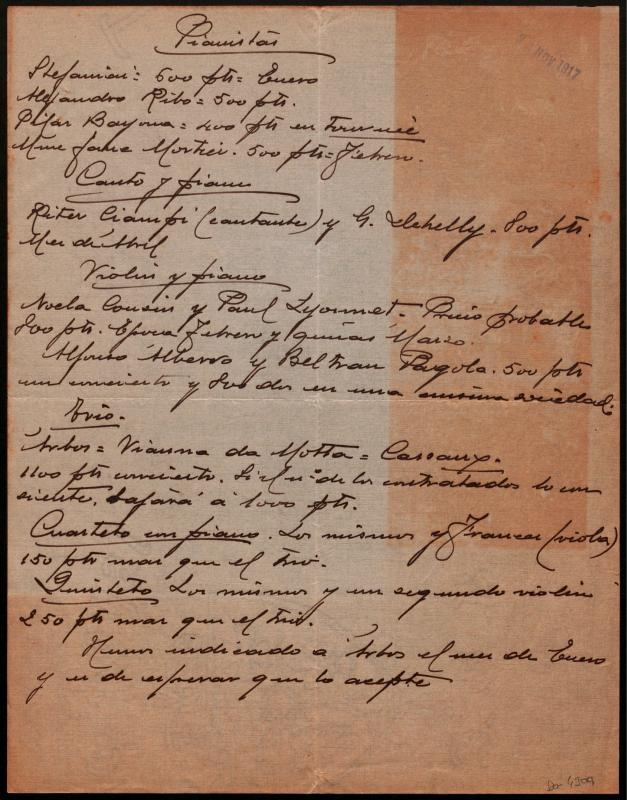 Pianistas
NOV 1917
Stefaniai = 500 pts = Enero
Alejandro Ribó = 500 pts.
Pilar Bayona = 400 pts en tournée
Mme Jane Mortier. 500 pts = Febrero.
Canto y piano
Ritter Ciampi (cantante) y G. 800 pts.
Mes de Abril
Violin y piano
Noela Cousin y Paul Lyonnet. Precio probable
800 pts. Epoca Febrero y quizas Marzo.
Alfonso y Beltran Pagola. 500 pts
un concierto y 800 dos en una misma sociedad.
Trio.
Arbos = Vianna da Motta = Cassaux.
1100 pts concierto. Si el nº de los contratados lo con
siente, bajará á 1000 pts.
Cuarteto con piano. Los mismos y Frances (viola)
150 pts mas que el trio.
Quinteto Los mismos y un segundo violin
250 pts mas que el trio.
Hemos indicado á Arbos el mes de Enero
y es de esperar que lo acepte
Do- 4309